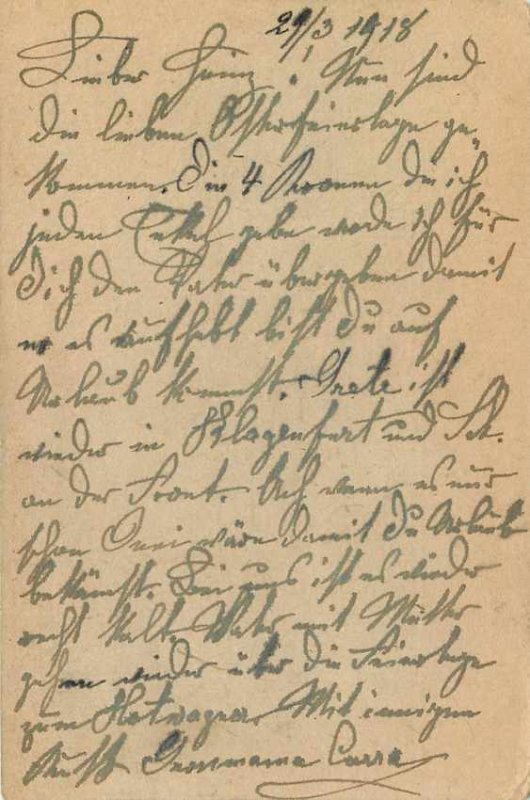 29/3 1918
Lieber Heinz! Nun sind
die lieben Osterfeiertage ge-
kommen. Die 4 Kronen die ich
jeden Enkel gebe werde ich für
Dich den Vater übergeben damit
er es aufhebt bist Du auf
Urlaub kommst. Grete ist
wieder in Klagenfurt und
an der Front. Ach wenn es nur
schon wäre damit Du Urlaub
bekämst. Bei uns ist es wieder
recht kalt. Vater mit Mutter
gehen wieder über die Feiertage
zum Mit innigen
Kuß Grossmama